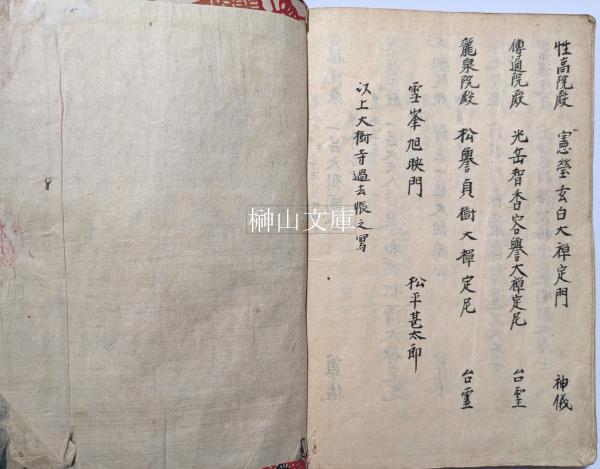 性高院殿 憲瑩玄白大禅定門 神儀
傳通院殿 光岳智香容譽大禅定尼 台霊
龍泉院殿 松譽貞樹大禅定尼 台霊
雪峯旭映門 松平甚太郎
以上大樹寺過去帳之寫
榊山文庫